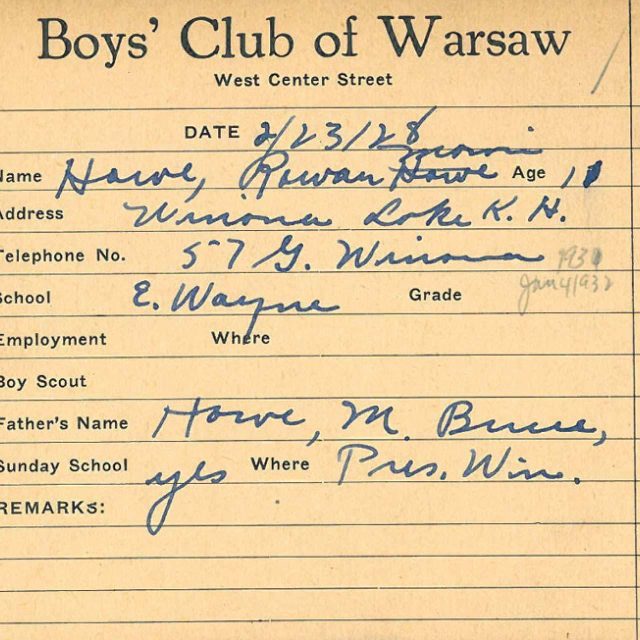 Boys' Club of Warsaw
West Center Street
DATE 2/23/28
Name Howe, Rowan Howe Age 1
Address Winona Lake K. H.
Telephone No. 57 G. Winona 1931
School E. Wayne Grade Jan 4 1932
Employment Where
Boy Scout
Father's Name Howe, M. Bruce,
Sunday School yes Where Pres. Win.
REMARKS: